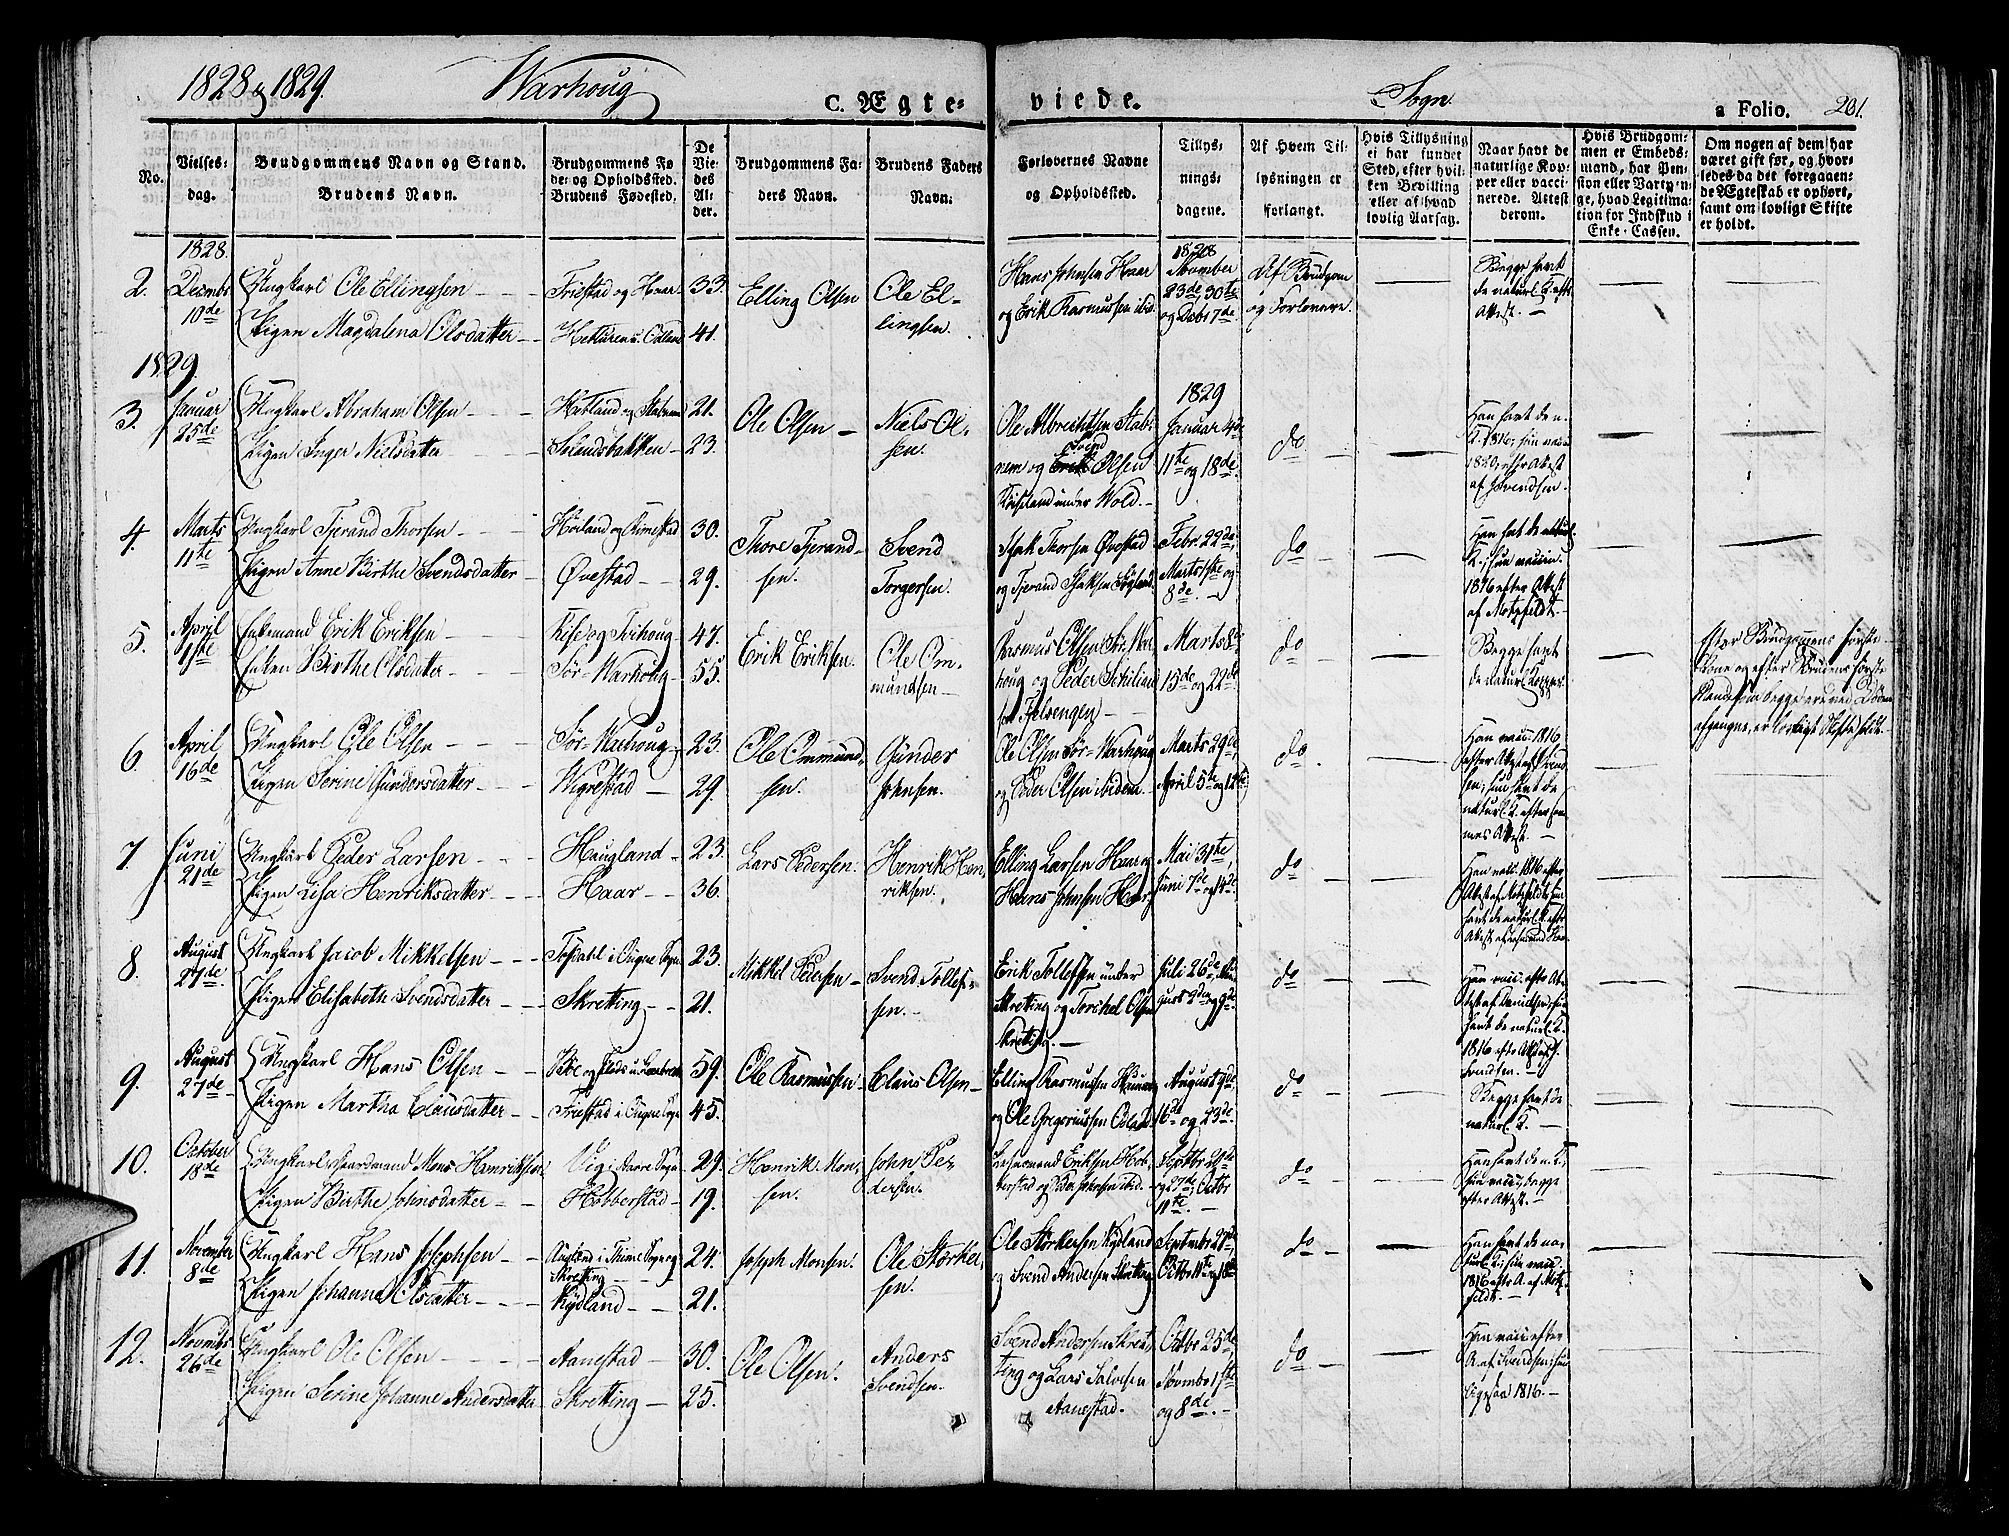 1828 & 1829.
Warhoug
C. Ægte-
viede.
Sogn.
a Folio. 201.
No.
Vielses-
dag.
Brudgommens Navn og Stand.
Brudens Navn.
Brudgommens Fø
de- og Opholdsted.
Brudens Fødested.
De
Vie-
des
Al-
der.
Brudgommens Fa-
ders Navn.
Brudens Faders
Navn.
Forlovernes Navne
og Opholdsted.
Tillys-
nings-
dagene.
Af Hvem Til-
lysningen er
forlangt.
Hvis Tillysning
ei har fundet
Sted, efter hvil-
ken Bevilling
eller af hvad
lovlig Aarsag.
Naar havt de
naturlige Kop-
per eller vacci-
nerede. Attest
derom.
Hvis Brudgom-
men er Embeds-
mand, har Pen-
sion eller Vartpen-
ge, hvad Legitima-
tion for Indskud i
Enke-Cassen.
Om nogen af dem har
været gift før, og hvor-
ledes da det foregaaen-
de Ægteskab er ophørt,
samt om lovligt Skifte
er holdt.
1828.
2. Decmbr
10de
Ungkarl Ole Ellingsen
Pigen Magdalena Olsdatter
Friestad og Haar
33.
41.
Elling Olsen
Ole El-
lingsen.
Hans Johnsen Haar
og Erik Rasmussen ibid.
1828
Novmber
23de, 30te
og Decbr 7de.
Af Brudgom
og Forlovere.
Begge havt
de naturl. K. eftr
Attest.
1829
3. Januar
25de
Ungkarl Abraham Olsen
Pigen Inger Nielsdatter
21.
23.
Ole Olsen
Niels Ol-
sen.
Ole Albrechtsen Stab-
nem og Svend Olsen
under Wold.
1829
Januar 4de
11te og 18de.
do
Han havt de n.
K. 1816, hun vacc.
1820, eftr Attest
af Svendsen.
4. Marts
11te
Ungkarl Tjerand Thorsen
Pigen Anne Birthe Svendsdatter
Høiland og Qvinestad
Øvestad
30.
29.
Thore Tjerand-
sen.
Svend
Torgersen.
Isak Thorsen Øvestad
og Tjerand Isaksen
Febr. 22de,
Marts 1ste og
8de.
do
Han havt de naturl.
K.; hun vaccin.
1816 efter Attest
af Motzfeldt.
5. April
1ste
Enkemand Erik Eriksen
Enken Birthe Olsdatter
Sør-Warhoug
47.
55.
Erik Eriksen.
Ole Om-
mundsen
Rasmus Olsen Sør-War-
houg og Peder
Marts 8de,
15de og 22de.
do
Begge havt
de naturl. Kopper.
Efter Brudgommens første
Kone og efter Brudens første
Mand, som begge ere ved Døden
afgangne, er lovligt Skifte holdt.
6. April
16de
Ungkarl Ole Olsen
Pigen Serine Gundersdatter
Sør-Warhoug
Wigrestad
23.
29.
Ole Ommund-
sen.
Gunder
Johnsen.
Ole Olsen Sør-Warhoug
og Peder Olsen ibidem.
Marts 29de,
April 5te og 12te
do
Han vacc. 1816
efter Attest af Svend-
sen; hun havt de
naturl. K. efter
Attest.
7. Juni
21de
Ungkarl Peder Larsen
Pigen Lisa Henriksdatter
Haugland
Haar
23.
36.
Lars Pedersen.
Henrik Hen-
riksen.
Elling Larsen Haar og
Hans Johnsen Haar
Mai 31te,
Juni 7de og 14de.
do
Han vacc. 1816 efter
Attest af Motzfeldt, hun
havt de naturl. K. eftr
8. August
27de.
Ungkarl Jacob Mikkelsen
Pigen Elisabeth Svendsdatter
Skretting
23.
21.
Mikkel Pedersen
Svend Tollef-
sen.
Erik Tollefsen under
Skretting og Torchel Olsen
Skretting.
Juli 26de, Au-
gust 2de og 9de.
do
1816 eftr Attest af
Svendsen.
9. August
27de
Ungkarl Hans Olsen
Pigen Martha Clausdatter
59.
45.
Ole Rasmussen
Claus Olsen
Elling Rasmussen
og Ole Gregoriussen Odland.
August 9de,
16de og 23de.
do
Begge havt de
naturl. K.
10. October
18de
Ungkarl Gaardmand Mons Henriksen
Pigen Birthe Johnsdatter
Viig i Aarre Sogn
Hobberstad
29.
19.
Henrik Mon-
sen.
John Pe-
dersen.
Eriksen Hob-
berstad og Peder Johnsen ibid.
Septbr 20de
og 27de, Octbr
11te.
do
Han havt de n. K.,
hun vacc., begge
efter Attest.
11. November
8de
Ungkarl Hans Josephsen
Pigen Johanna Olsdatter
Augland i Thime Sogn og
Skretting
Rydland
24.
21.
Joseph Monsen.
Ole Størkel-
sen.
Ole Størkersen Rydland
og Svend Andersen Skretting
Septmbr 27de,
Octbr 11te og 18de
do
Han havt de na-
turl. K.; hun vacc.
1816 eftr A. af Motz-
feldt.
12. Novmbr
26de
Ungkarl Ole Olsen
Pigen Serine Johanne Andersdatter
Aanestad
Skretting
30.
25.
Ole Olsen.
Anders
Svendsen.
Svend Andersen Skret-
ting og Lars Salvesen
Aanestad.
Octbr 25de,
Novmbr 1ste
og 8de.
do
Han vacc. efter
A. af Svendsen; hun
1816.